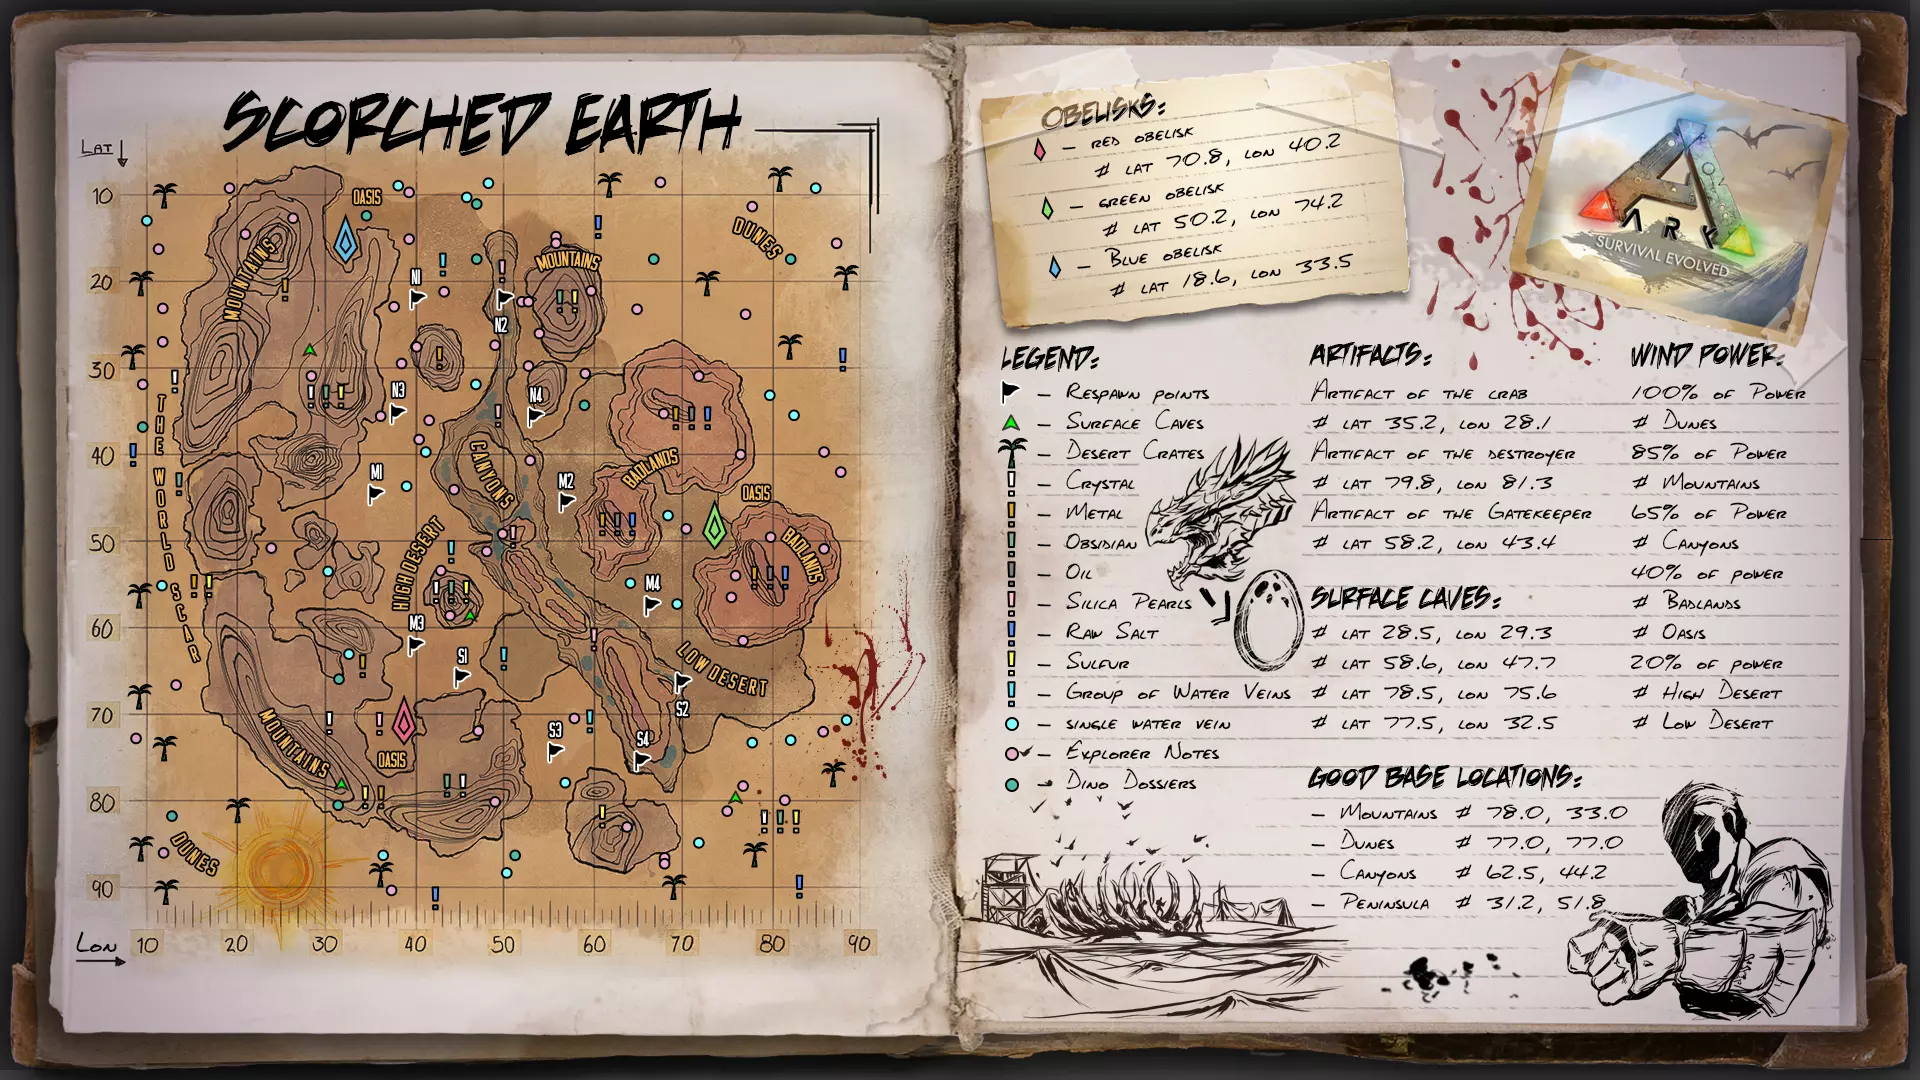 SCORCHED EARTH
LAT
10
20
30
40
50
60
70
80
90
LON 10 20 30 40 50 60 70 80 90
OASIS
MOUNTAINS
DUNES
MOUNTAINS
N1
N2
N3
N4
THE WORLD SCAR
CANYONS
BADLANDS
M1
M2
OASIS
BADLANDS
HIGH DESERT
M4
M3
S1
LOW DESERT
S2
MOUNTAINS
OASIS
S3
S4
DUNES
OBELISKS:
– RED OBELISK
# LAT 70.8, LON 40.2
– GREEN OBELISK
# LAT 50.2, LON 74.2
– BLUE OBELISK
# LAT 18.6, LON 33.5
ARK
SURVIVAL EVOLVED
LEGEND:
– RESPAWN POINTS
– SURFACE CAVES
– DESERT CRATES
– CRYSTAL
– METAL
– OBSIDIAN
– OIL
– SILICA PEARLS
– RAW SALT
– SULFUR
– GROUP OF WATER VEINS
– SINGLE WATER VEIN
– EXPLORER NOTES
– DINO DOSSIERS
ARTIFACTS:
ARTIFACT OF THE CRAB
# LAT 35.2, LON 28.1
ARTIFACT OF THE DESTROYER
# LAT 79.8, LON 81.3
ARTIFACT OF THE GATEKEEPER
# LAT 58.2, LON 43.4
SURFACE CAVES:
# LAT 28.5, LON 29.3
# LAT 58.6, LON 47.7
# LAT 78.5, LON 75.6
# LAT 77.5, LON 32.5
GOOD BASE LOCATIONS:
– MOUNTAINS # 78.0, 33.0
– DUNES # 77.0, 77.0
– CANYONS # 62.5, 44.2
– PENINSULA # 31.2, 51.8
WIND POWER:
100% OF POWER
# DUNES
85% OF POWER
# MOUNTAINS
65% OF POWER
# CANYONS
40% OF POWER
# BADLANDS
# OASIS
20% OF POWER
# HIGH DESERT
# LOW DESERT